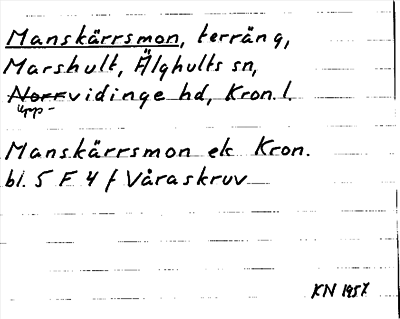 Manskärrsmon, terräng,
Marshult, Älghults sn,
Norrvidinge hd, Kron. l.
Upp-
Manskärrsmon ek Kron.
bl. 5 F 4 f Våraskruv
KN 1957